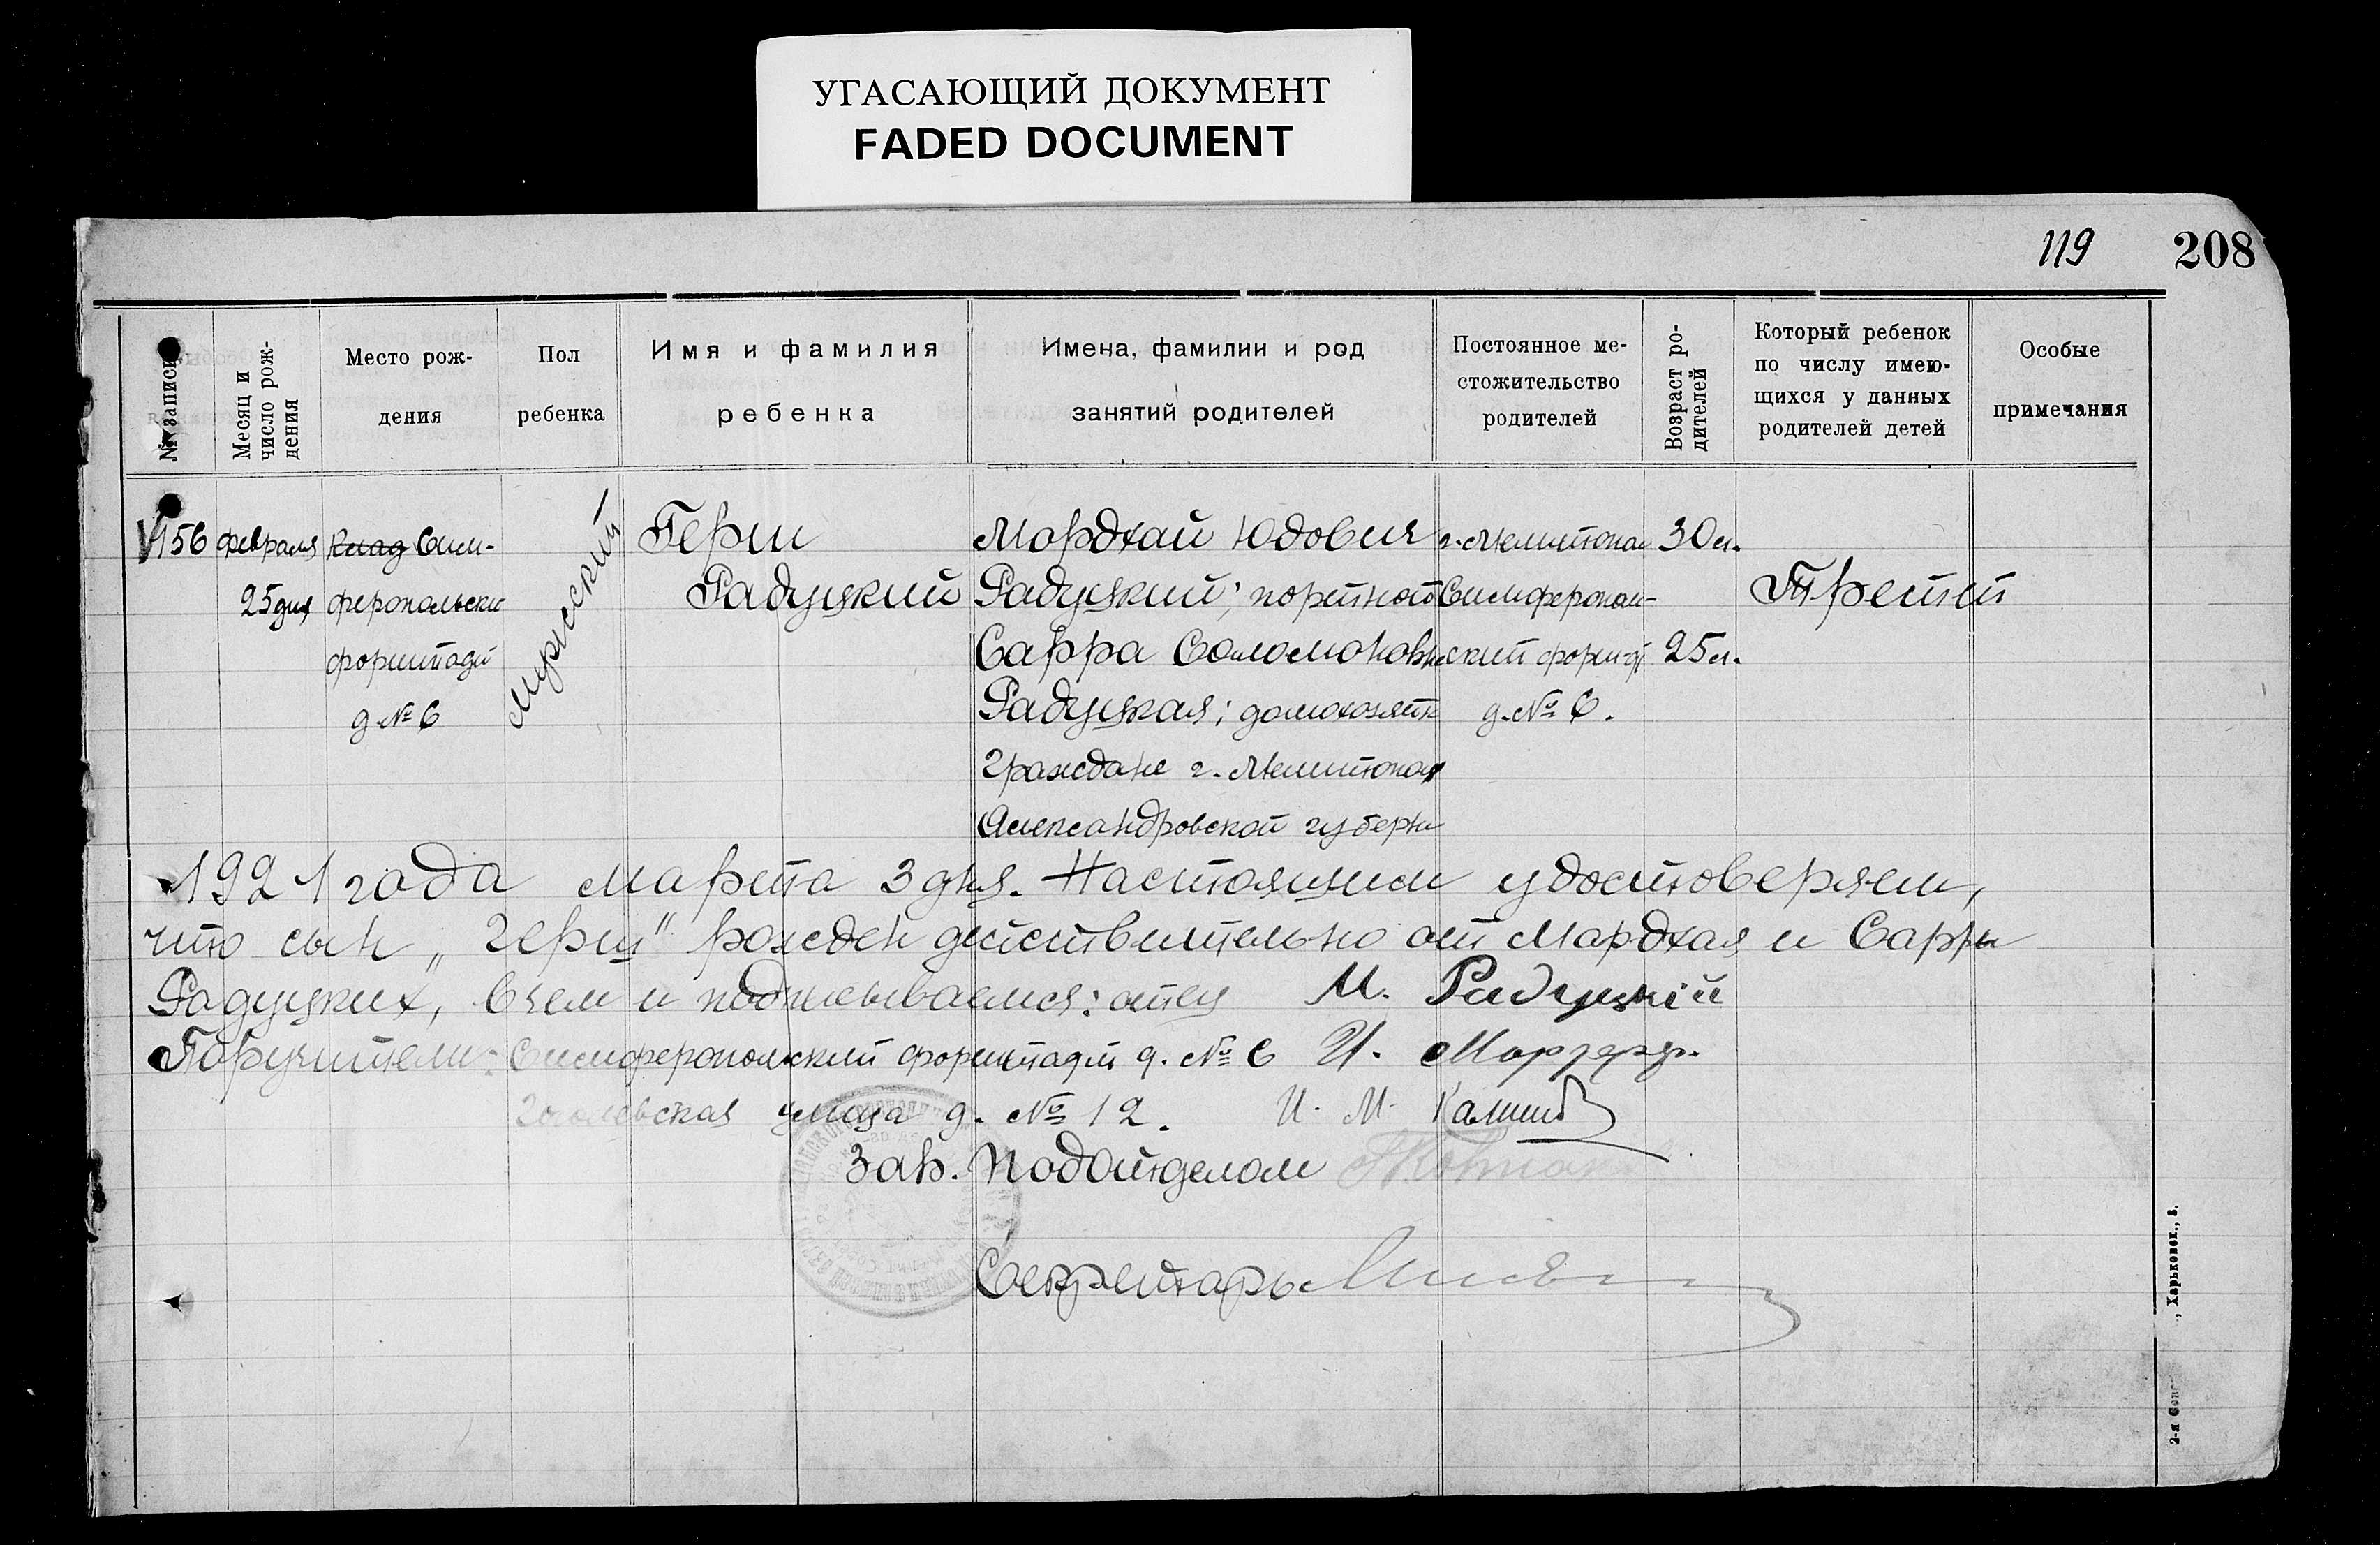 УГАСАЮЩИЙ ДОКУМЕНТ
FADED DOCUMENT
119 208
№ записи
Месяц и
число рож-
дения
Место рож-
дения
Пол
ребенка
Имя и фамилия
ребенка
Имена, фамилии и род
занятий родителей
Постоянное ме-
стожительство
родителей
Возраст ро-
дителей
Который ребенок
по числу имею-
щихся у данных
родителей детей
Особые
примечания
156
февраля
25 дня
Сим-
феропольски
форштадт
д №6
Мужеский
Герш
Радуцкий
Мордхай Юдович
Радуцкий; портной
Сарра Соломоновна
Радуцкая; домохозяйк
Граждане г. Мелитополя
Александровской губерни
г. Мелитополь
Симферополь-
ский форшт
д. № 6.
30 л.
25 л.
Третий
1921 года марта 3 дня. Настоящим удостоверяем,
что сын „Герш" рожден действительно от Мардхая и Сарры
Радуцких, в чем и подписываемся: отец М. Радуцкій
Поручители: Симферопольский форштадт д. № 6 И.
Гоголевская улица д. № 12. И. М.
Зав. Подотделом
Секретарь
, Харьковск., 3.
2-я